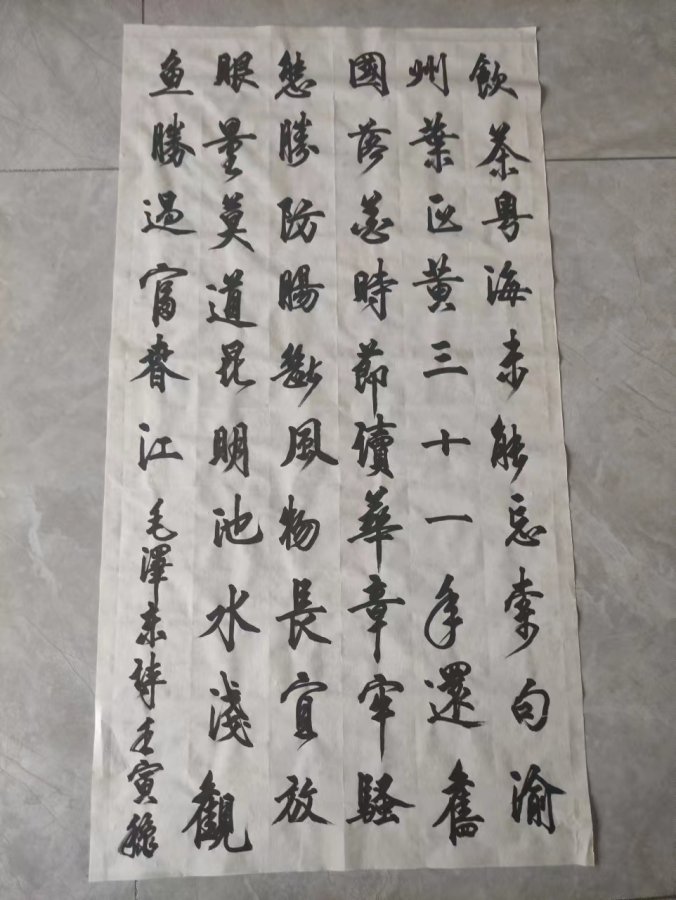 飲茶粵海未能忘索句渝
州葉正黃三十一年還舊
國落花時節讀華章牢騷
態勝防腸斷風物長宜放
眼量莫道昆明池水淺觀
魚勝過富春江 毛澤東詩壬寅